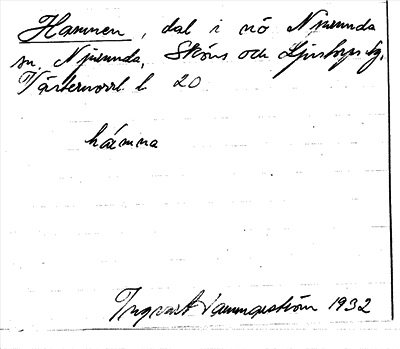 Hamnen, dal i nö Njurunda
sn. Njurunda, Sköns och Ljustorps tg,
Västernorrl. l 20
hámna
Ingvart Hammarström 1932